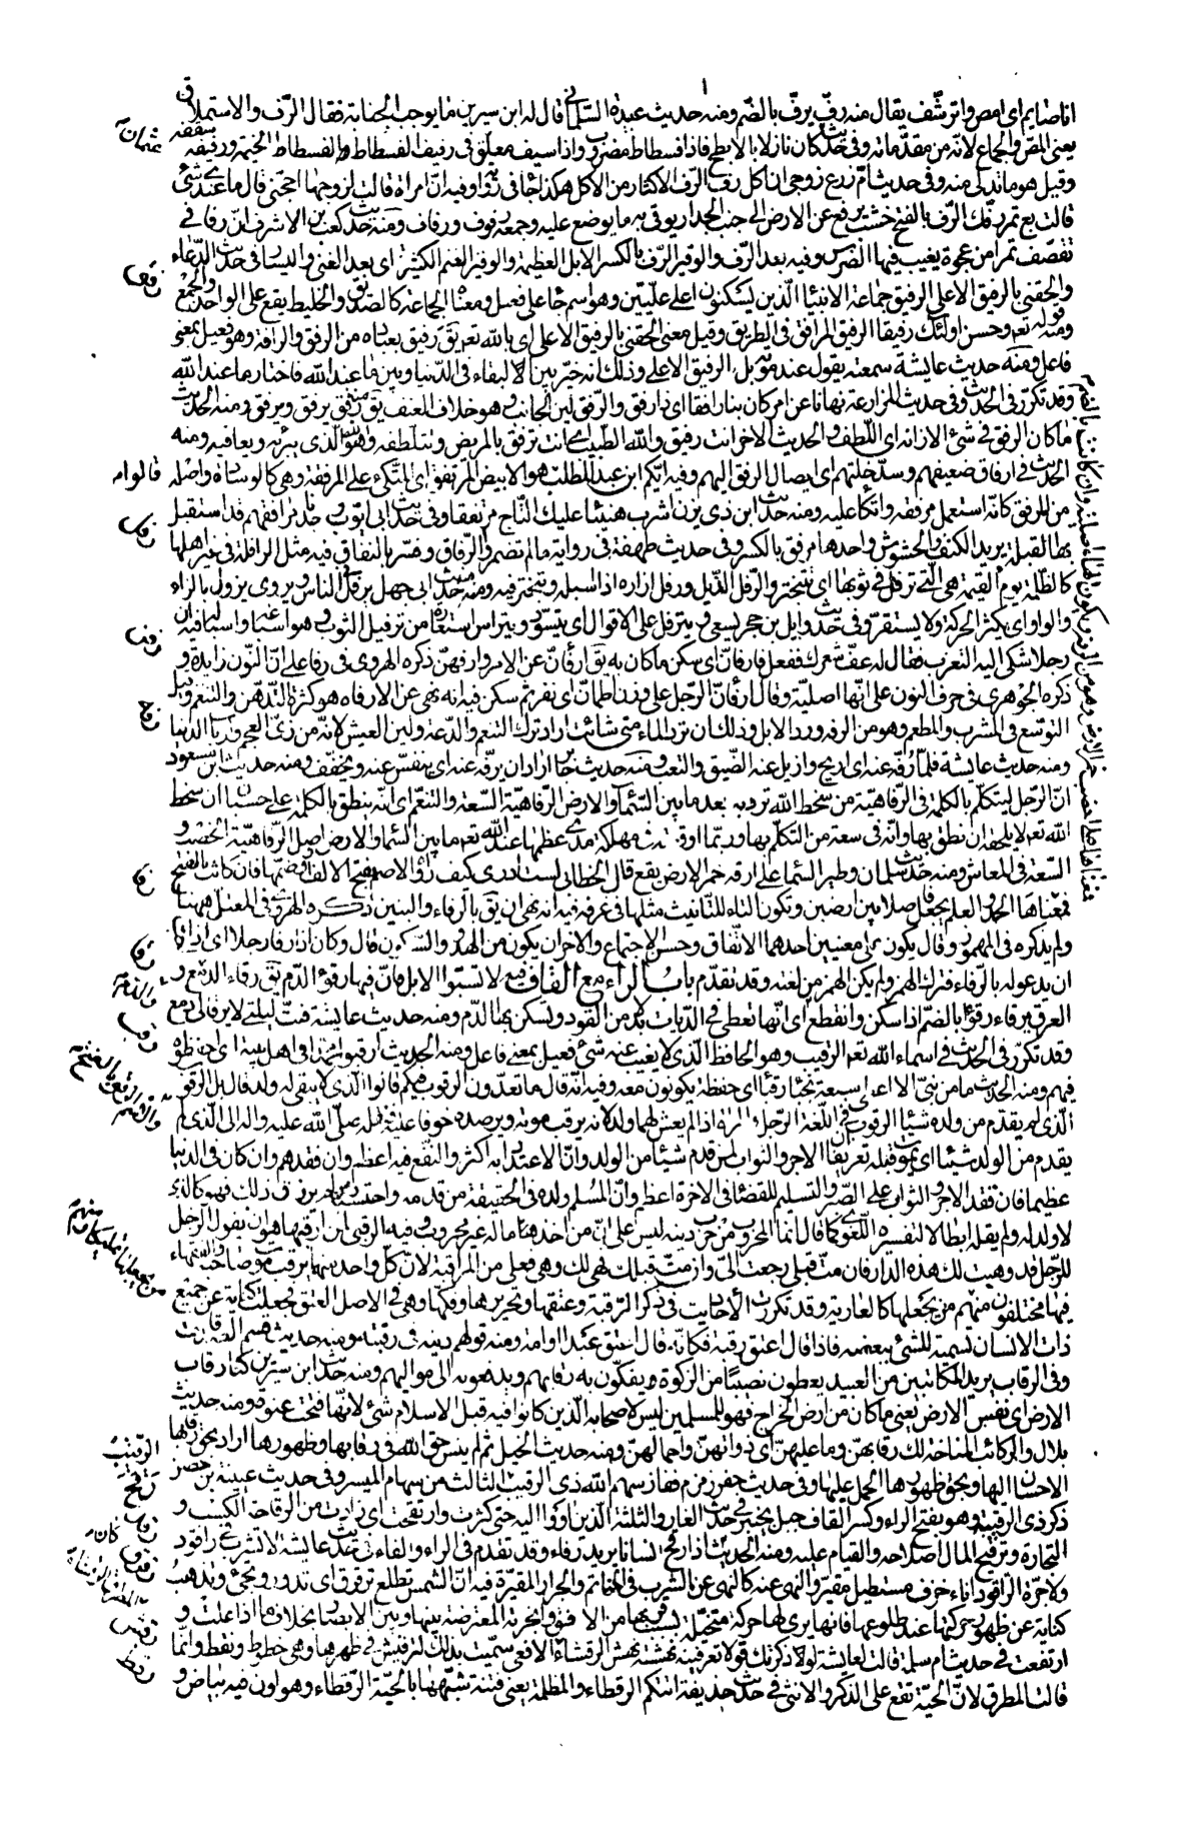 انا صايم اى امص واترشّف يقال منه رفّ يرفّ بالضّم ومنه حديث عبيدة السّلمانى قال له ابن سيرين ما يوجب الجنابة فقال الرّف والاستملاق
يعنى المصّ والجماع لانّه من مقدّماته وفى حديث عثمان كان نازلا بالابطح فاذا فسطاط مضروب واذا سيف معلّق فى رفيف الفسطاط والفسطاط الخيمة ورفيفه سقفه
وقيل هو ما تدلى منه وفى حديث امّ زرع زوجى ان اكل رفّ الرّف الاكثار من الاكل هكذا جاء فى رواية وفيه انّ امراة قالت لزوجها احجّنى قال ما عندى شئ
قالت بع تمر رفّك الرّف بالفتح خشب يرفع عن الارض الى جنب الجدار يوقى به ما يوضع عليه وجمعه رفوف ورفاف ومنه حديث كعب بن الاشرف انّ رفافى
تقصّف تمرا من عجوة يغيب فيها الضّرس وفيه بعد الرّف والوقير الرّف بالكسر الابل العظيمة والوقير الغنم الكثيرة اى بعد الغنى واليسار فى حديث الدّعاء
والحقنى بالرفيق الاعلى الرفيق جماعة الانبياء الّذين يسكنون اعلى علّيّين وهو اسم جاء على فعيل ومعناه الجماعة كالصديق والخليط يقع على الواحد والجمع
ومنه قوله تعم وحسن اولئك رفيقا الرفيق المرافق فى الطريق وقيل معنى الحقنى بالرفيق الاعلى اى بالله تعم يق رفيق بعباده من الرفق والرافة وهو فعيل بمعنى
فاعل ومنه حديث عايشة سمعته يقول عند موته بل الرفيق الاعلى وذلك انه خيّر بين البقاء فى الدّنيا وبين ما عند الله فاختار ما عند الله
وقد تكرّر فى الحديث وفى حديث المزارعة نهانا عن امر كان بنا رافقا اى ذا رفق والرّفق لين الجانب وهو خلاف العنف يق منه رفق يرفق ويرفق ومنه الحديث
ما كان الرفق فى شئ الا زانه اى اللّطف والحديث الاخر انت رفيق والله الطّبيب اى انت ترفق بالمريض وتتلطفه والله الّذى يبرئه ويعافيه ومنه
الحديث فى ارفاق ضعيفهم وسدّ خلّتهم اى ايصال الرفق اليهم وفيه ايّكم ابن عبد المطّلب قالوا هو الابيض المرتفق اى المتّكئ على المرفقة وهى كالوسادة واصله
من المرفق كانّه استعمل مرفقه واتّكأ عليه ومنه حديث ابن ذى يزن اشرب هنيئا عليك التّاج مرتفقا وفى حديث ابى ايّوب وجدنا مرافقهم قد استقبل
بها القبلة يريد الكنف والحشوش واحدها مرفق بالكسر وفى حديث طهفة فى رواية ما لم تضمروا الرّفاق وفسّر بالنفاق فيه مثل الرافلة فى غير اهلها
كالظلمة يوم القيمة هى الّتى ترفل فى ثوبها اى تتبختر والرّفل الذّيل ورفل ازاره اذا اسبله وتبختر فيه ومنه حديث ابى جهل يرفل فى الناس ويروى يزول بالزاء
والواو اى يكثر الحركة ولا يستقرّ وفى حديث وايل بن حجر يسعى ويترفل على الاقوال اى يتسوّد ويتراس استعارة من ترفيل الثوب وهو اسباغه واسباله فيه ان
رجلا شكى اليه التعزب فقال له عفّ شعرك ففعل فارفانّ اى سكن ما كان به يق ارفانّ عن الامر وارفهنّ ذكره الهروى فى رفا على انّ النّون زايدة و
ذكره الجوهرى فى حرف النون على انّها اصليّة وقال ارفانّ الرّجل على وزن اطمانّ اى نفر ثم سكن فيه انه نهى عن الارفاه هو كثرة التّدهّن والتنعم وقيل
التوسّع فى المشرب والمطعم وهو من الرفه ورد الابل وذلك ان ترد الماء متى شائت اراد ترك التنعم والدّعة ولين العيش لانّه من زىّ العجم وارباب الدنيا
ومنه حديث عايشة فلمّا رفّه عنه اى اريح وازيل عنه الضّيق والتعب ومنه حديث جابر اراد ان يرفّه عنه اى ينفّس عنه ويخفّف ومنه حديث ابن مسعود
انّ الرّجل ليتكلّم بالكلمة فى الرّفاهيّة من سخط الله ترديه بعد ما بين السّماء والارض الرّفاهيّة السّعة والتنعّم اى انّه ينطق بالكلمة على حسبان ان سخط
الله تعم لا يلحقه ان نطق بها وانّه فى سعة من التكلّم بها وربّما اوقعته فى مهلكة مدى عظمها عند الله تعم ما بين السّماء والارض واصل الرّفاهيّة الخصب و
السّعة فى المعاش ومنه حديث سلمان وطير السّماء على ارفه خمر الارض يقع قال الخطّابى لست ادرى كيف رواه الاصمّ بفتح الالف او ضمّها فان كانت بالفتح
فمعناها الحد والعلم يجعل فاصلا بين ارضين وتكون التاء للتّانيث مثلها فى غرفة فيه انه نهى ان يق بالرفاء والبنين ذكره الهروى فى المعتل ههنا
ولم يذكره فى المهموز وقال يكون على معنيين احدهما الاتّفاق وحسن الاجتماع والاخر ان يكون من الهدو والسّكون قال وكان اذا رفا رجلا اى اذا
ان يدعو له بالرّفاء فترك الهمز ولم يكن الهمز من لغته وقد تقدّم باب الراء مع القاف فيه لا تسبّوا الابل فانّ فيها رقوء الدّم يق رقاء الدّمع و
العرق يرقاء رقوءا بالضمّ اذا سكن وانقطع اى انّها تعطى فى الدّيات بدلا من القود ويسكن بها الدّم ومنه حديث عايشة فبتّ ليلتى لا يرقا لى دمع
وقد تكرّر فى الحديث فى اسماء الله تعم الرّقيب وهو الحافظ الّذى لا يغيب عنه شئ فعيل بمعنى فاعل ومنه الحديث ارقبوا محمّدا فى اهل بيته اى احفظوه
فيهم ومنه الحديث ما من نبىّ الا اعطى سبعة نجباء رقباء اى حفظة يكونون معه وفيه انّه قال ما تعدّون الرقوب فيكم قالوا الّذى لا يبقى له ولد قال بل الرقوب
الّذى لم يقدّم من ولده شيئا الرقوب فى اللّغة الرّجل والمرأة اذا لم يعش لهما ولد لانه يرقب موته ويرصده خوفا عليه فنقله صلّى الله عليه واله الى الّذى لم
يقدم من الولد شيئا اى يموت قبله تعريفا انّ الاجر والثواب لمن قدم شيئا من الولد وانّ الاعتداد به اكثر والنّفع فيه اعظم وان فقدهم وان كان فى الدنيا
عظيما فان فقد الاجر والثواب على الصّبر والتسليم للقضاء فى الاخرة اعظم وانّ المسلم ولده فى الحقيقة من قدمه واحتسبه ومن لم يرزق ذلك فهو كالذى
لا ولد له ولم يقله ابطالا لتفسيره اللّغوى كما قال انما المحروب من حرب دينه ليس على انّ من اخذ ماله غير محروب وفيه الرقبى لمن ارقبها هو ان يقول الرّجل
للرّجل قد وهبت لك هذه الدار فان متّ قبلى رجعت الىّ وان متّ قبلك فهى لك وهى فعلى من المراقبة لانّ كلّ واحد منهما يرقب موت صاحبه والفقهاء
فيها مختلفون منهم من يجعلها كالعارية وقد تكررت الاحاديث فى ذكر الرّقبة وعتقها وتحريرها وفكّها وهى فى الاصل العنق فجعلت كناية عن جميع
ذات الانسان تسمية للشئ ببعضه فاذا قال اعتق رقبة فكانّه قال اعتق عبدا او امة ومنه قولهم دينه فى رقبته ومنه حديث قسم الصّدقات
وفى الرقاب يريد المكاتبين من العبيد يعطون نصيبا من الزكوة ويفكّون به رقابهم ويدفعونه الى مواليهم ومنه حديث ابن سيرين لنا رقاب
الارض اى نفس الارض يعنى ما كان من ارض الخراج فهو للمسلمين ليس لاصحابه الّذين كانوا فيه قبل الاسلام شئ لانّها فتحت عنوة ومنه حديث
بلال والركائب المناخة لك رقابهنّ وما عليهنّ اى ذواتهنّ واحمالهنّ ومنه حديث الخيل ثم لم ينس حق الله فى رقابها وظهورها اراد بحق رقابها
الاحسان اليها وبحق ظهورها الحمل عليها وفى حديث حفر زمزم فغار سهم الله ذى الرقيب الرّقيب الثالث من سهام الميسر وفى حديث عيينة بن حصن
ذكر ذى الرقيبة وهو بفتح الراء وكسر القاف جبل بخيبر فى حديث الغار والثلثة الّذين اووا اليه حتى كثرت وارتقحت اى زادت من الرقاحة الكسب و
التجارة وترقيح المال اصلاحه والقيام عليه ومنه الحديث كان اذا رقّح انسانا يريد رفاء وقد تقدم فى الراء والفاء فى حديث عايشة لا تشرب فى راقود
ولا جرّة الراقود اناء خزف مستطيل مقيّر والنّهى عنه كالنّهى عن الشرب فى الحناتم والجرار المقيّرة فيه انّ الشمس تطلع ترقرق اى تدور وتجئ وتذهب
كناية عن ظهور حركتها عند طلوعها فانها يرى لها حركة متخيّلة بسبب قربها من الافق وابخرته المعترضة بينها وبين الابصار بخلاف ما اذا علت و
ارتفعت فى حديث ام سلمة قالت لعايشة لو ذكرتك قولا تعرفينه نهشته نهش الرقشاء الافعى سمّيت بذلك لترقيش فى ظهرها وهى خطوط ونقط وانّما
قالت المطرق لانّ الحيّة تقع على الذكر والانثى فى حديث حذيفة اتتكم الرقطاء والمظلمة يعنى فتنة شبّهها بالحيّة الرّقطاء وهو لون فيه بياض و
رفق
رفل
رفن
رفه
رفا
رقا
رقب
رقح
رقد
رقرق
رقش
رقط